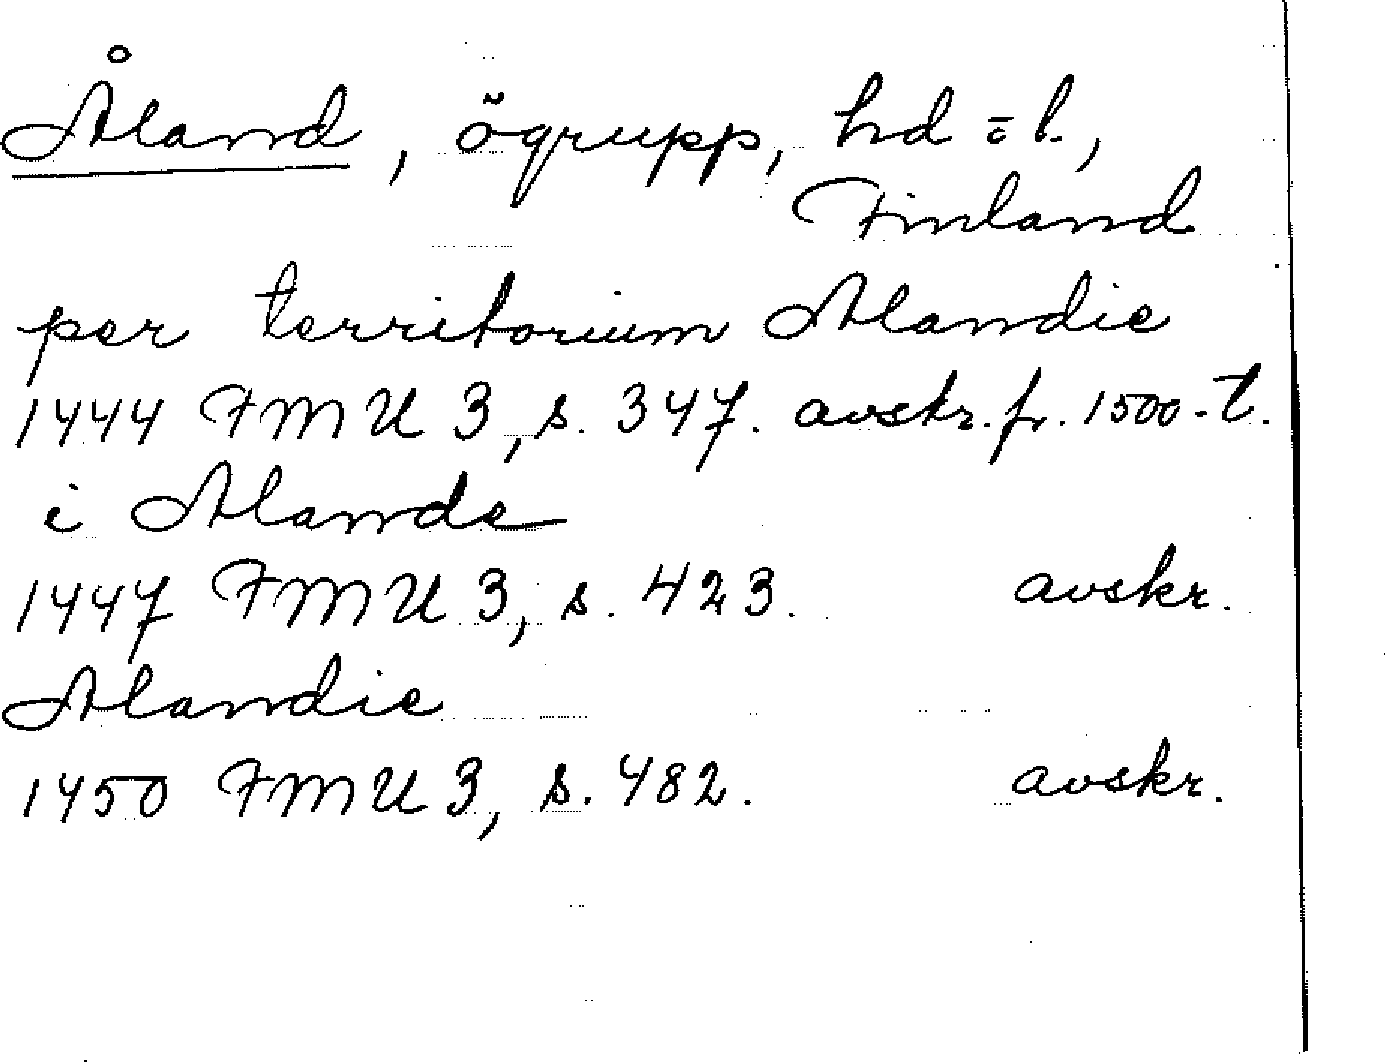 Åland, ögrupp, hd = l.,
Finland
per territorium Alandie
1444 FMU 3, s. 347. avskr. fr. 1500-t.
i Alande
1447 FMU 3, s. 423. avskr.
Alandie
1450 FMU 3, s. 482. avskr.